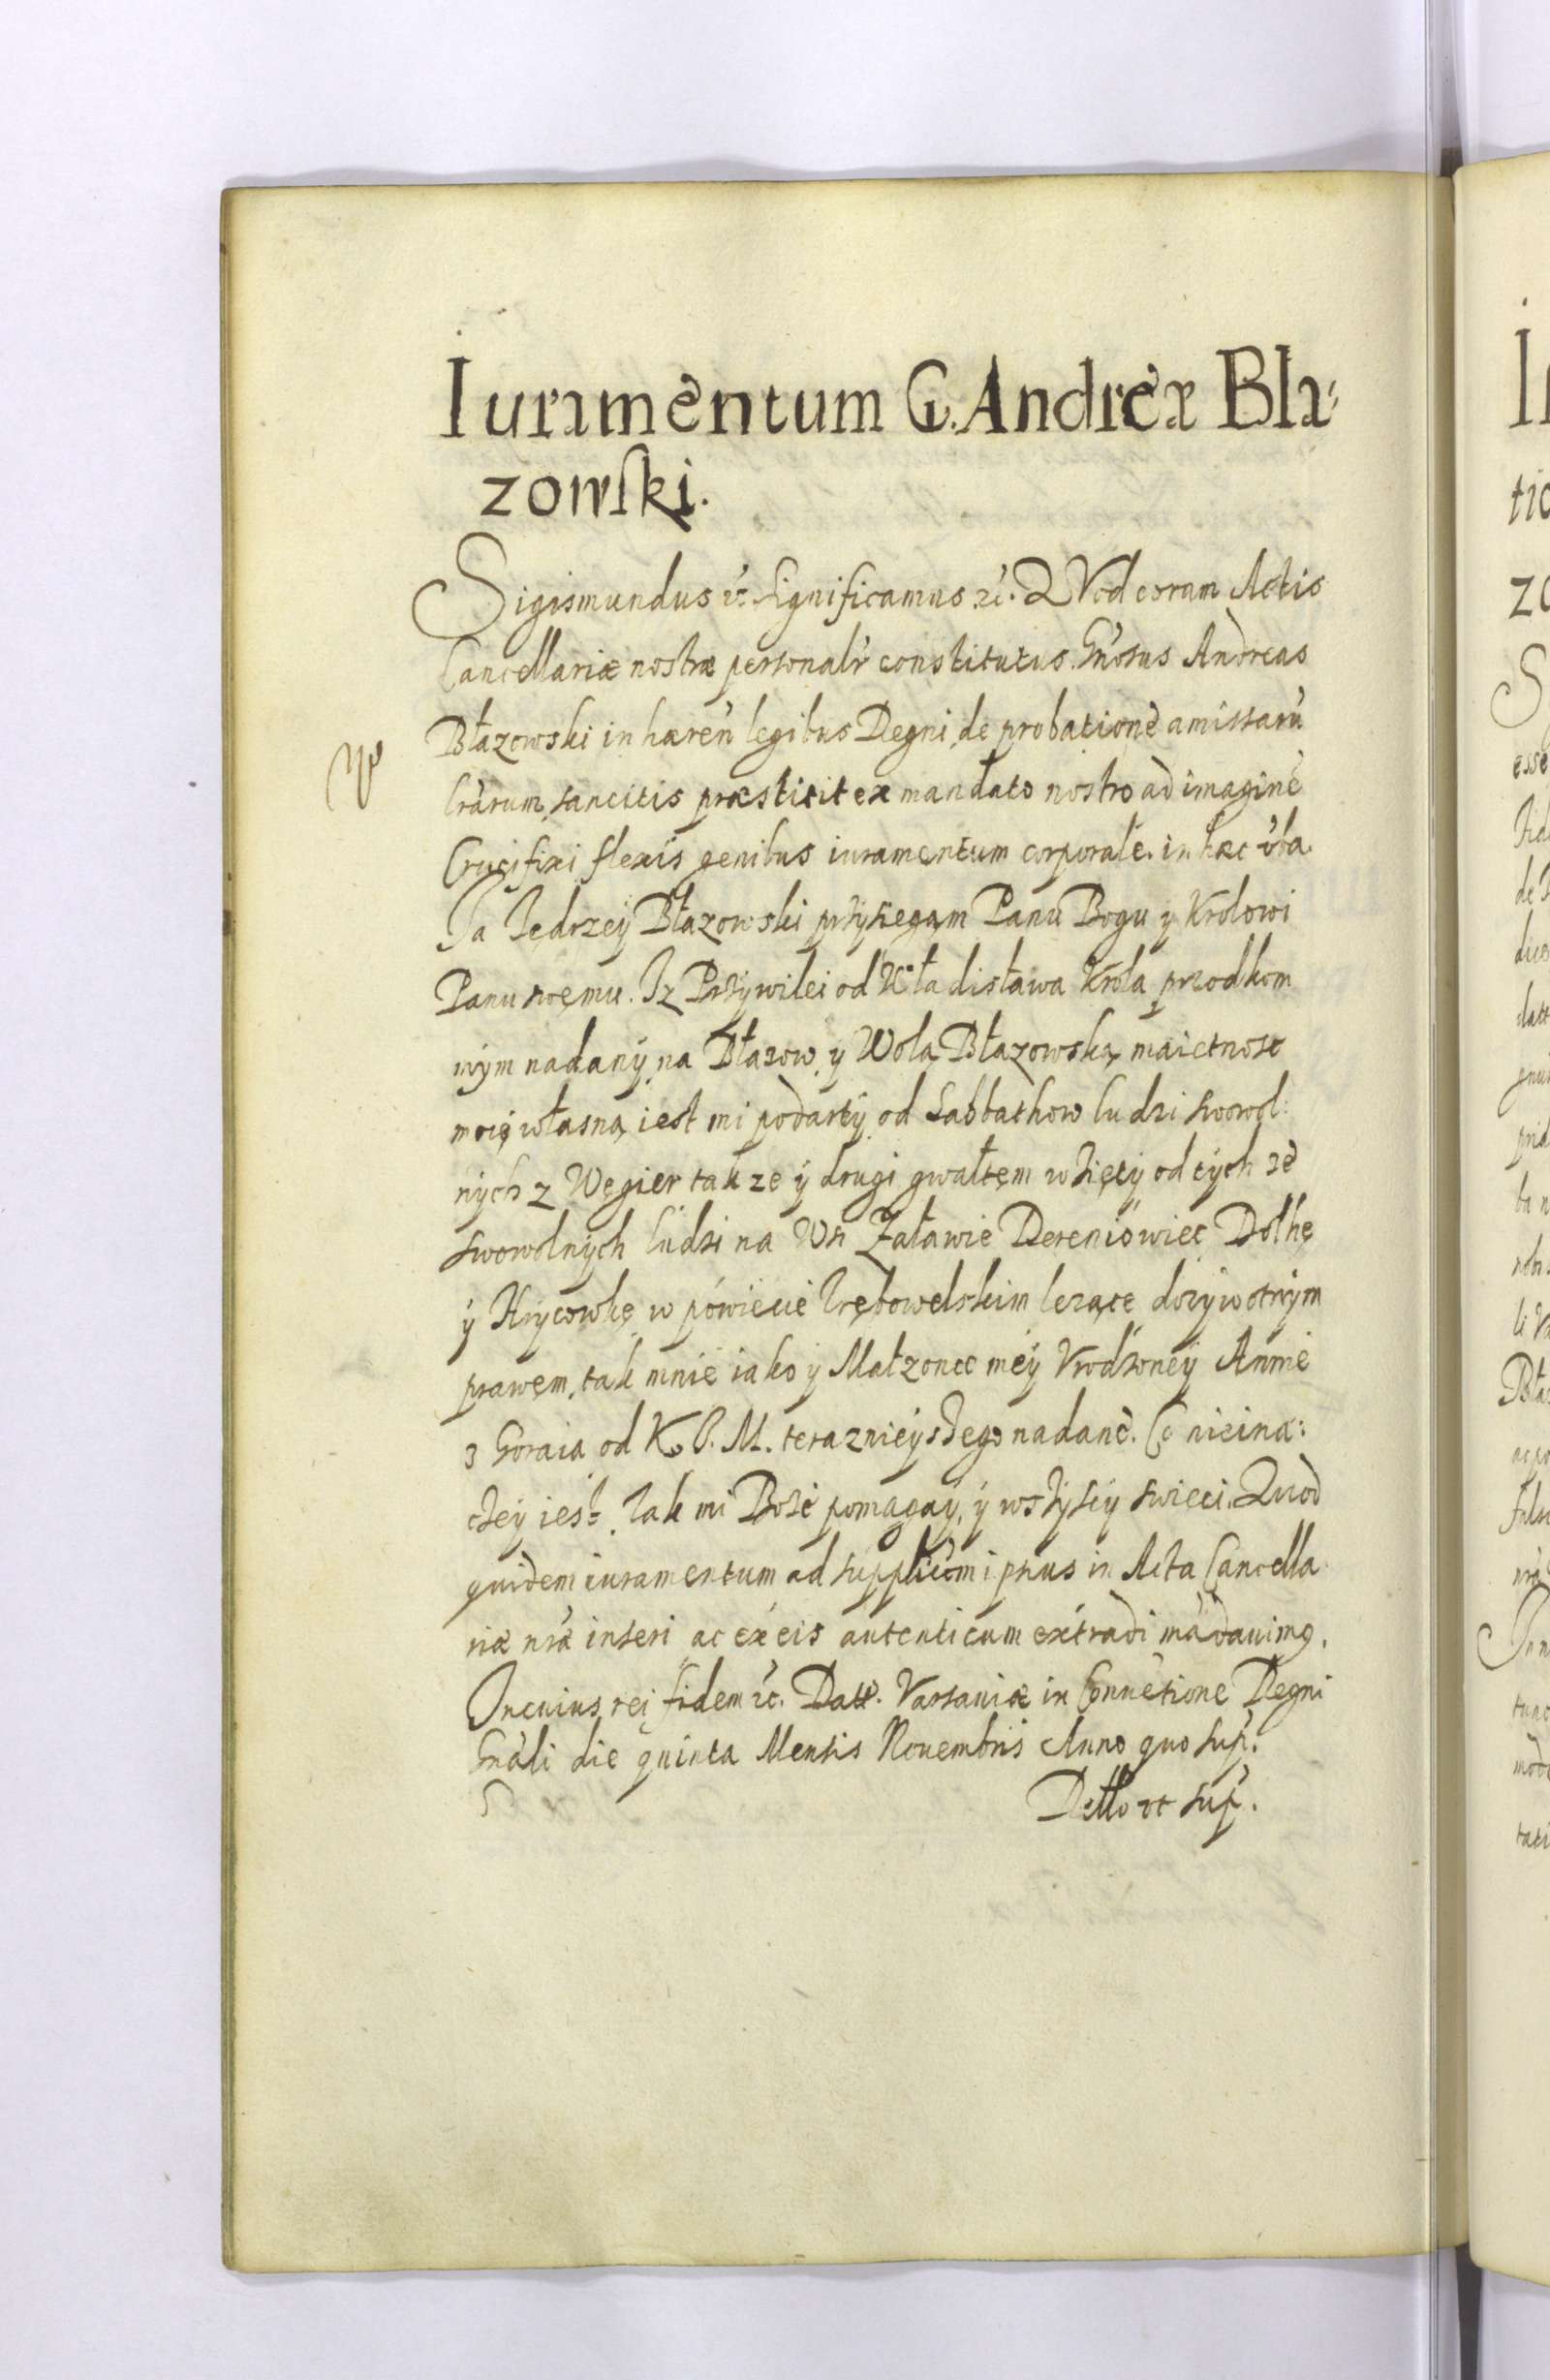 Iuramentum G. Andreæ Bla-
zowski.
Sigismundus etc. Significamus etc. QVod coram Actis
Cancellariæ nostræ personalr constitutus Gnosus Andreas
Błazowski inhæren legibus Regni, de probatione amissaru
lrarum, sancitis præstitit ex mandato nostro ad imagine
Crucifixi flexis genibus iuramentum corporale. in hæc vba.
Ja Jedrzey Błazowski przysiegąm Panu Bogu y Krolowi
Panu swęmu. Jz Przywilei od Władisława Krola przodkom
mym nadany na Błazow y Wolą Błazowską maietnosc
moię własną iest mi podarty od Sabbathow ludzi swowol-
nych z Węgier takze y drugi gwałtem wzięty od tych ze
swowolnych ludzi na Wsi Załawie Dereniowiec Dołhę
y Hrycowkę w powiecie Trębowelskim lezące dozywotnym
prawem, tak mnie iako y Małzonce mey Vrodzoney Annie
z Goraia od K. J. M. teraznieyszego nadane. Co nieina-
czey iest. Tak mi Boże pomagay, y wszyscy swieci. Quod
quidem iuramentum ad supplicom ipsius in Acta Cancella-
riæ nræ inseri ac ex eis autenticum extradi madauimg.
In cuius rei fidem etc. Datt. Varsauiæ in Conuetione Regni
Gnali die quinta Mensis Nouembris Anno quo sup.
Detto vt sup.